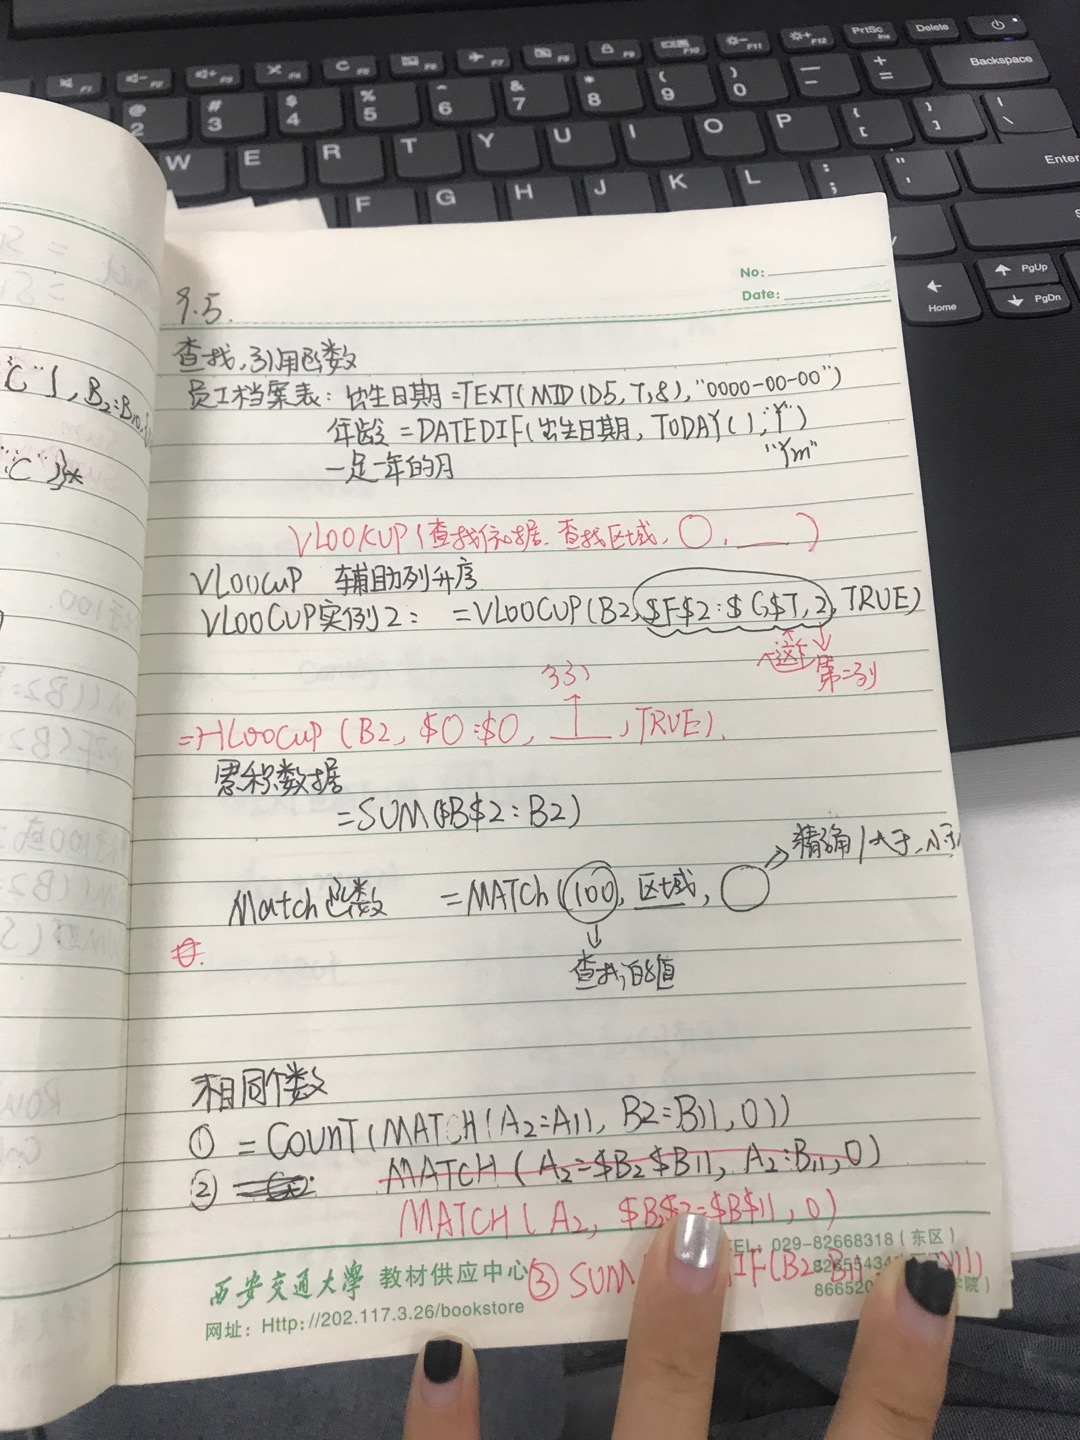 No:
Date:
9.5.
查找,引用函数
员工档案表: 出生日期=TEXT(MID(D5,7,8),"0000-00-00")
年龄 =DATEDIF(出生日期, TODAY(),"Y")
"Ym"
一足一年的月
VLOOKUP(查找依据, 查找区域, ○, __)
VLOOCUP 辅助列升序
VLOOCUP实例2: =VLOOCUP(B2,$F$2:$G$7,2,TRUE)
第二列
=HLOOCUP(B2, $O:$O, __, TRUE).
累积数据
=SUM($B$2:B2)
精确/大于,小于
Match函数 =MATCh(100, 区域, ○
查找的值
相同个数
① =COUNT(MATCH(A2:A11, B2:B11,0))
② MATCH(A2=$B2$B11, A2:B11,0)
MATCH(A2, $B$2:$B$11,0)
③ SUM IF(B2:B11
TEL: 029-82668318(东区)
西安交通大学 教材供应中心
网址: Http://202.117.3.26/bookstore
"C"}, B2:B10,
"C")}*
@ 2 # 3 $ 4 % 5 ^ 6 & 7 * 8 ( 9 ) 0 — - + =
PrtSc
Delete
Backspace
W E R T Y U I O P
F G H J K L
Enter
PgUp
Home
PgDn